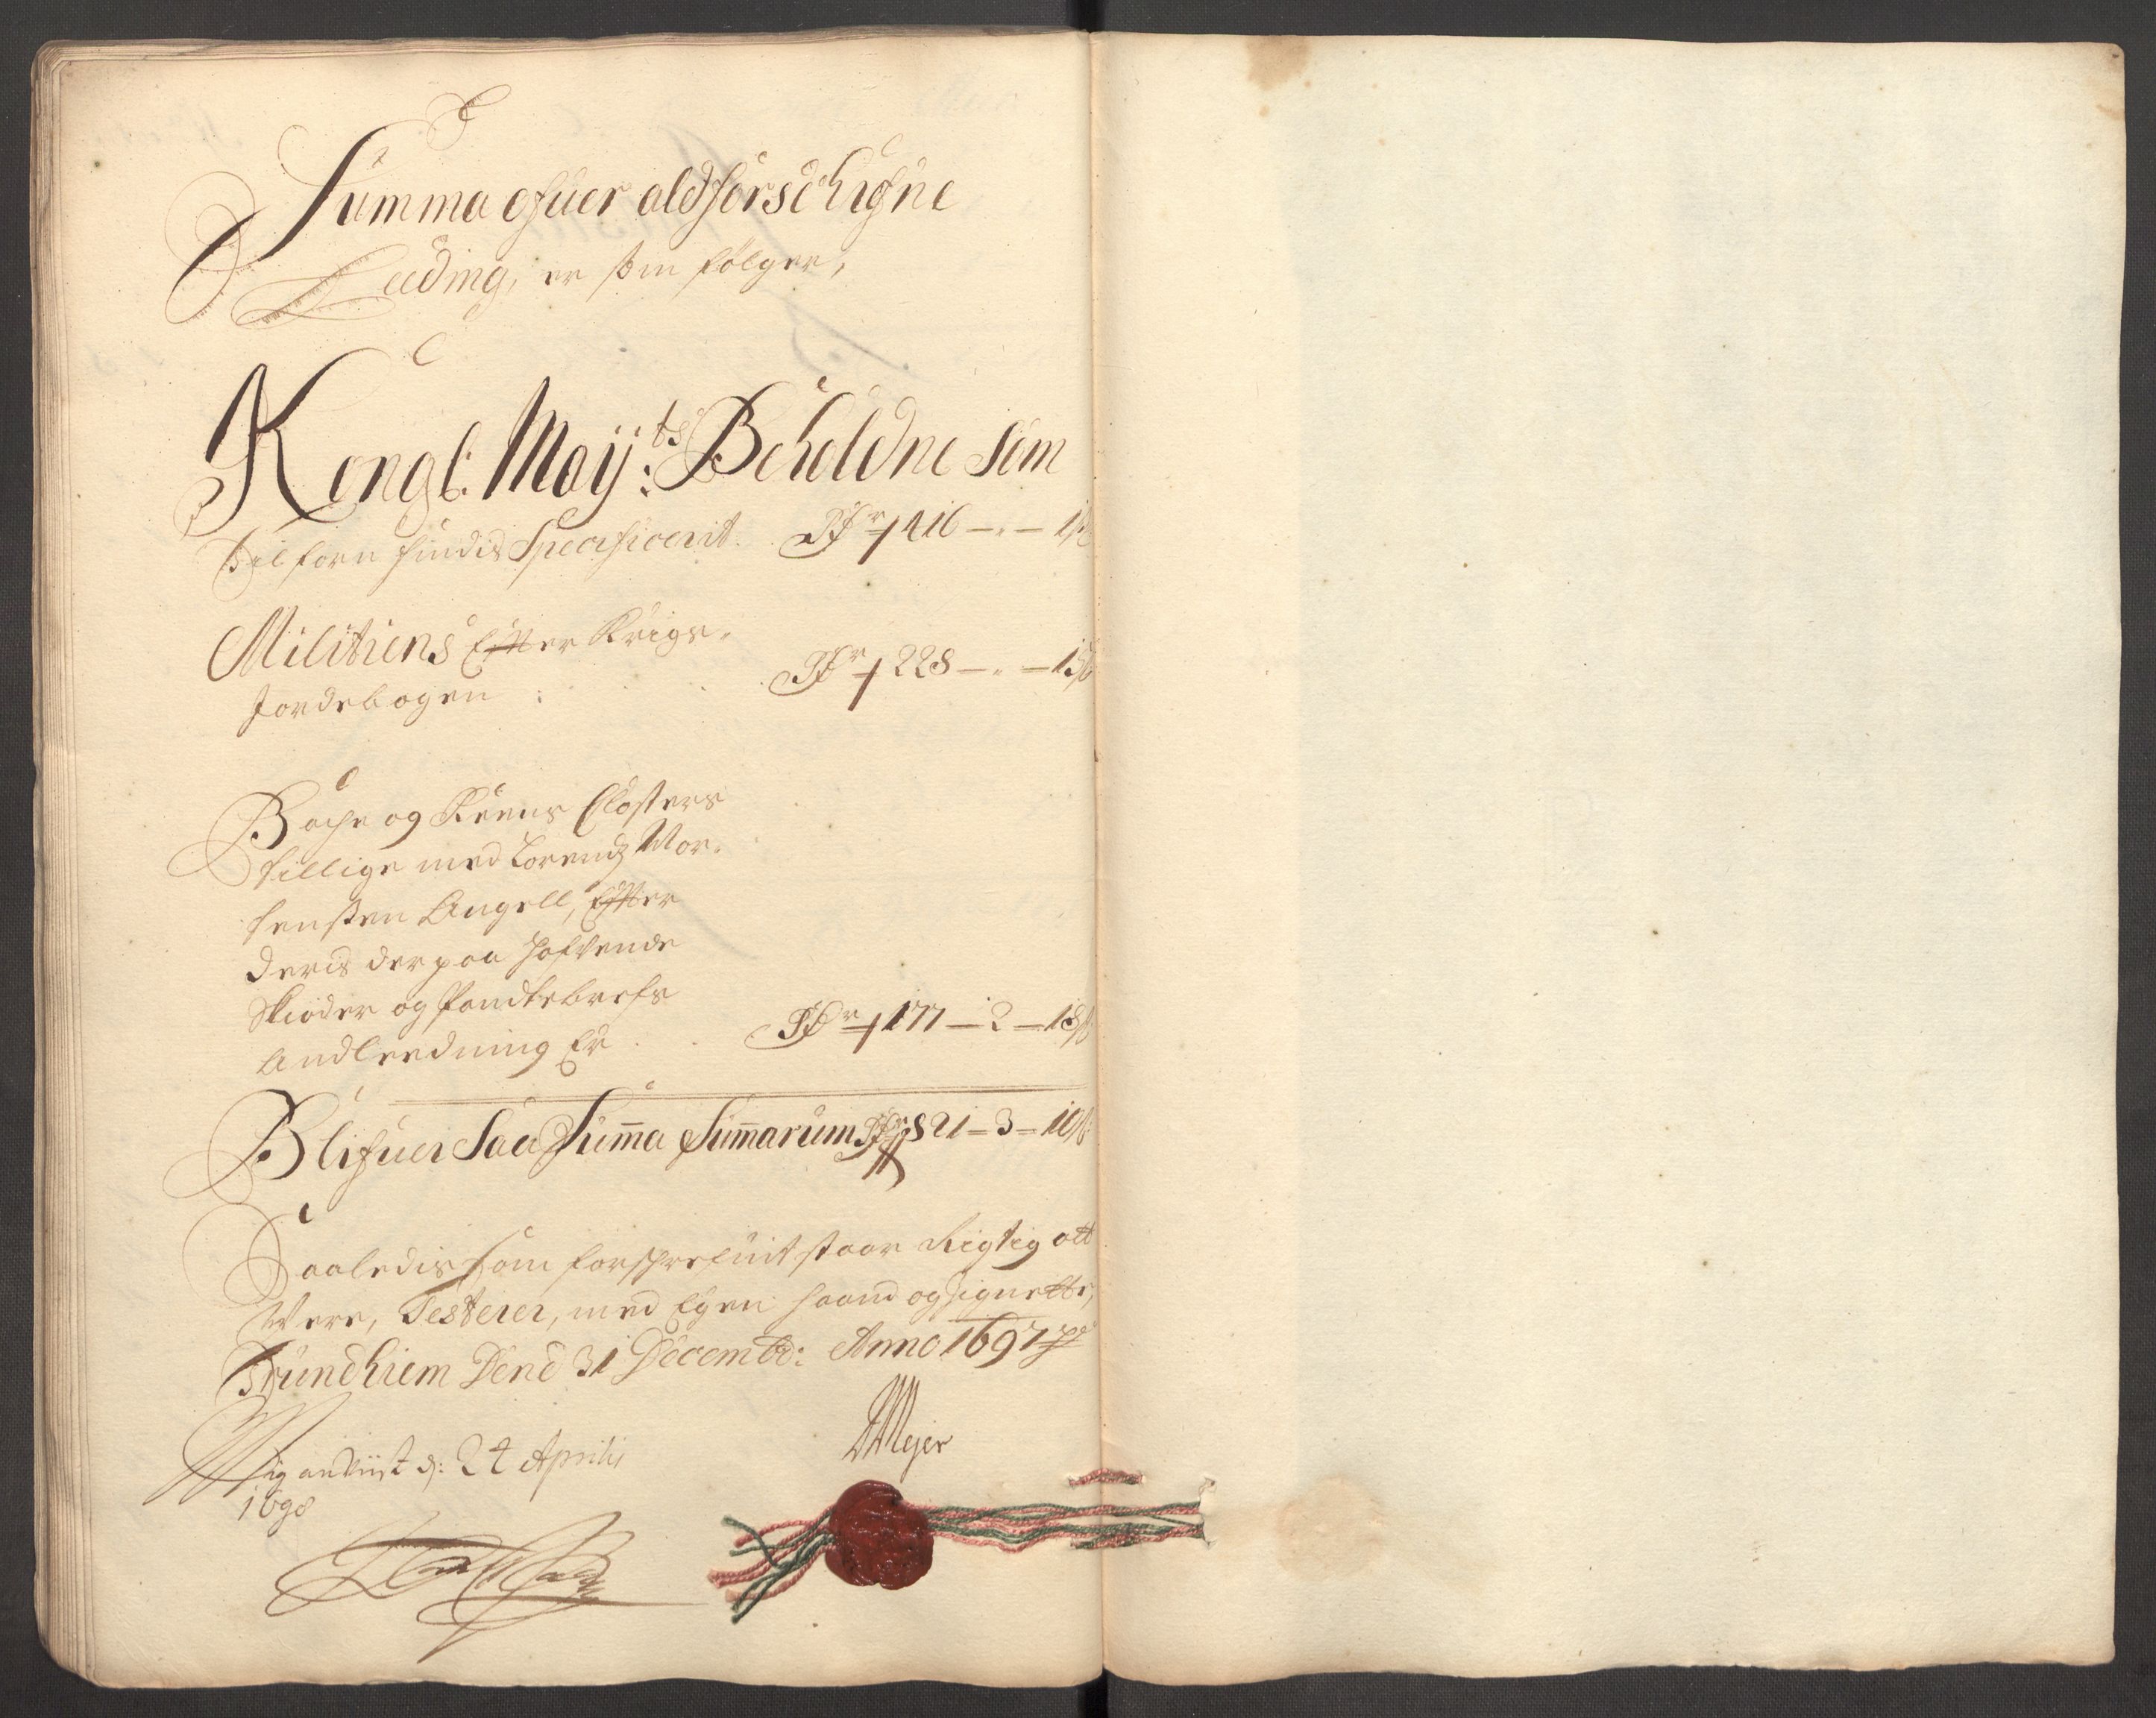 Summa ofuer aldforschrefne
Leding, er som følger,
Kongl: Maÿ:ts Beholdne som
til forn findis Specificerit. Rdr 416 — " — 1
Militiens Efter Krigs-
Jordebogen : Rdr 228 — " — 15
Bache og Reens Closters
sillige med Lorendz Mor-
sensten Angell, Efter
deris der paa hafvende
Skiøder og Pandtebrefs
Andleedning Er . . Rdr 177 — 2 — 18
Blifuer Saa Suma Sumarum Rdr 821 — 3 — 10
Saaledis som forschrefuit staar Rigtig att
Were, Testerer, med Egen haand og Signette,
Trundhiem Dend 31 Decembr: Anno 1697
Mejer
Mig anviist d: 24 Aprilis
1698